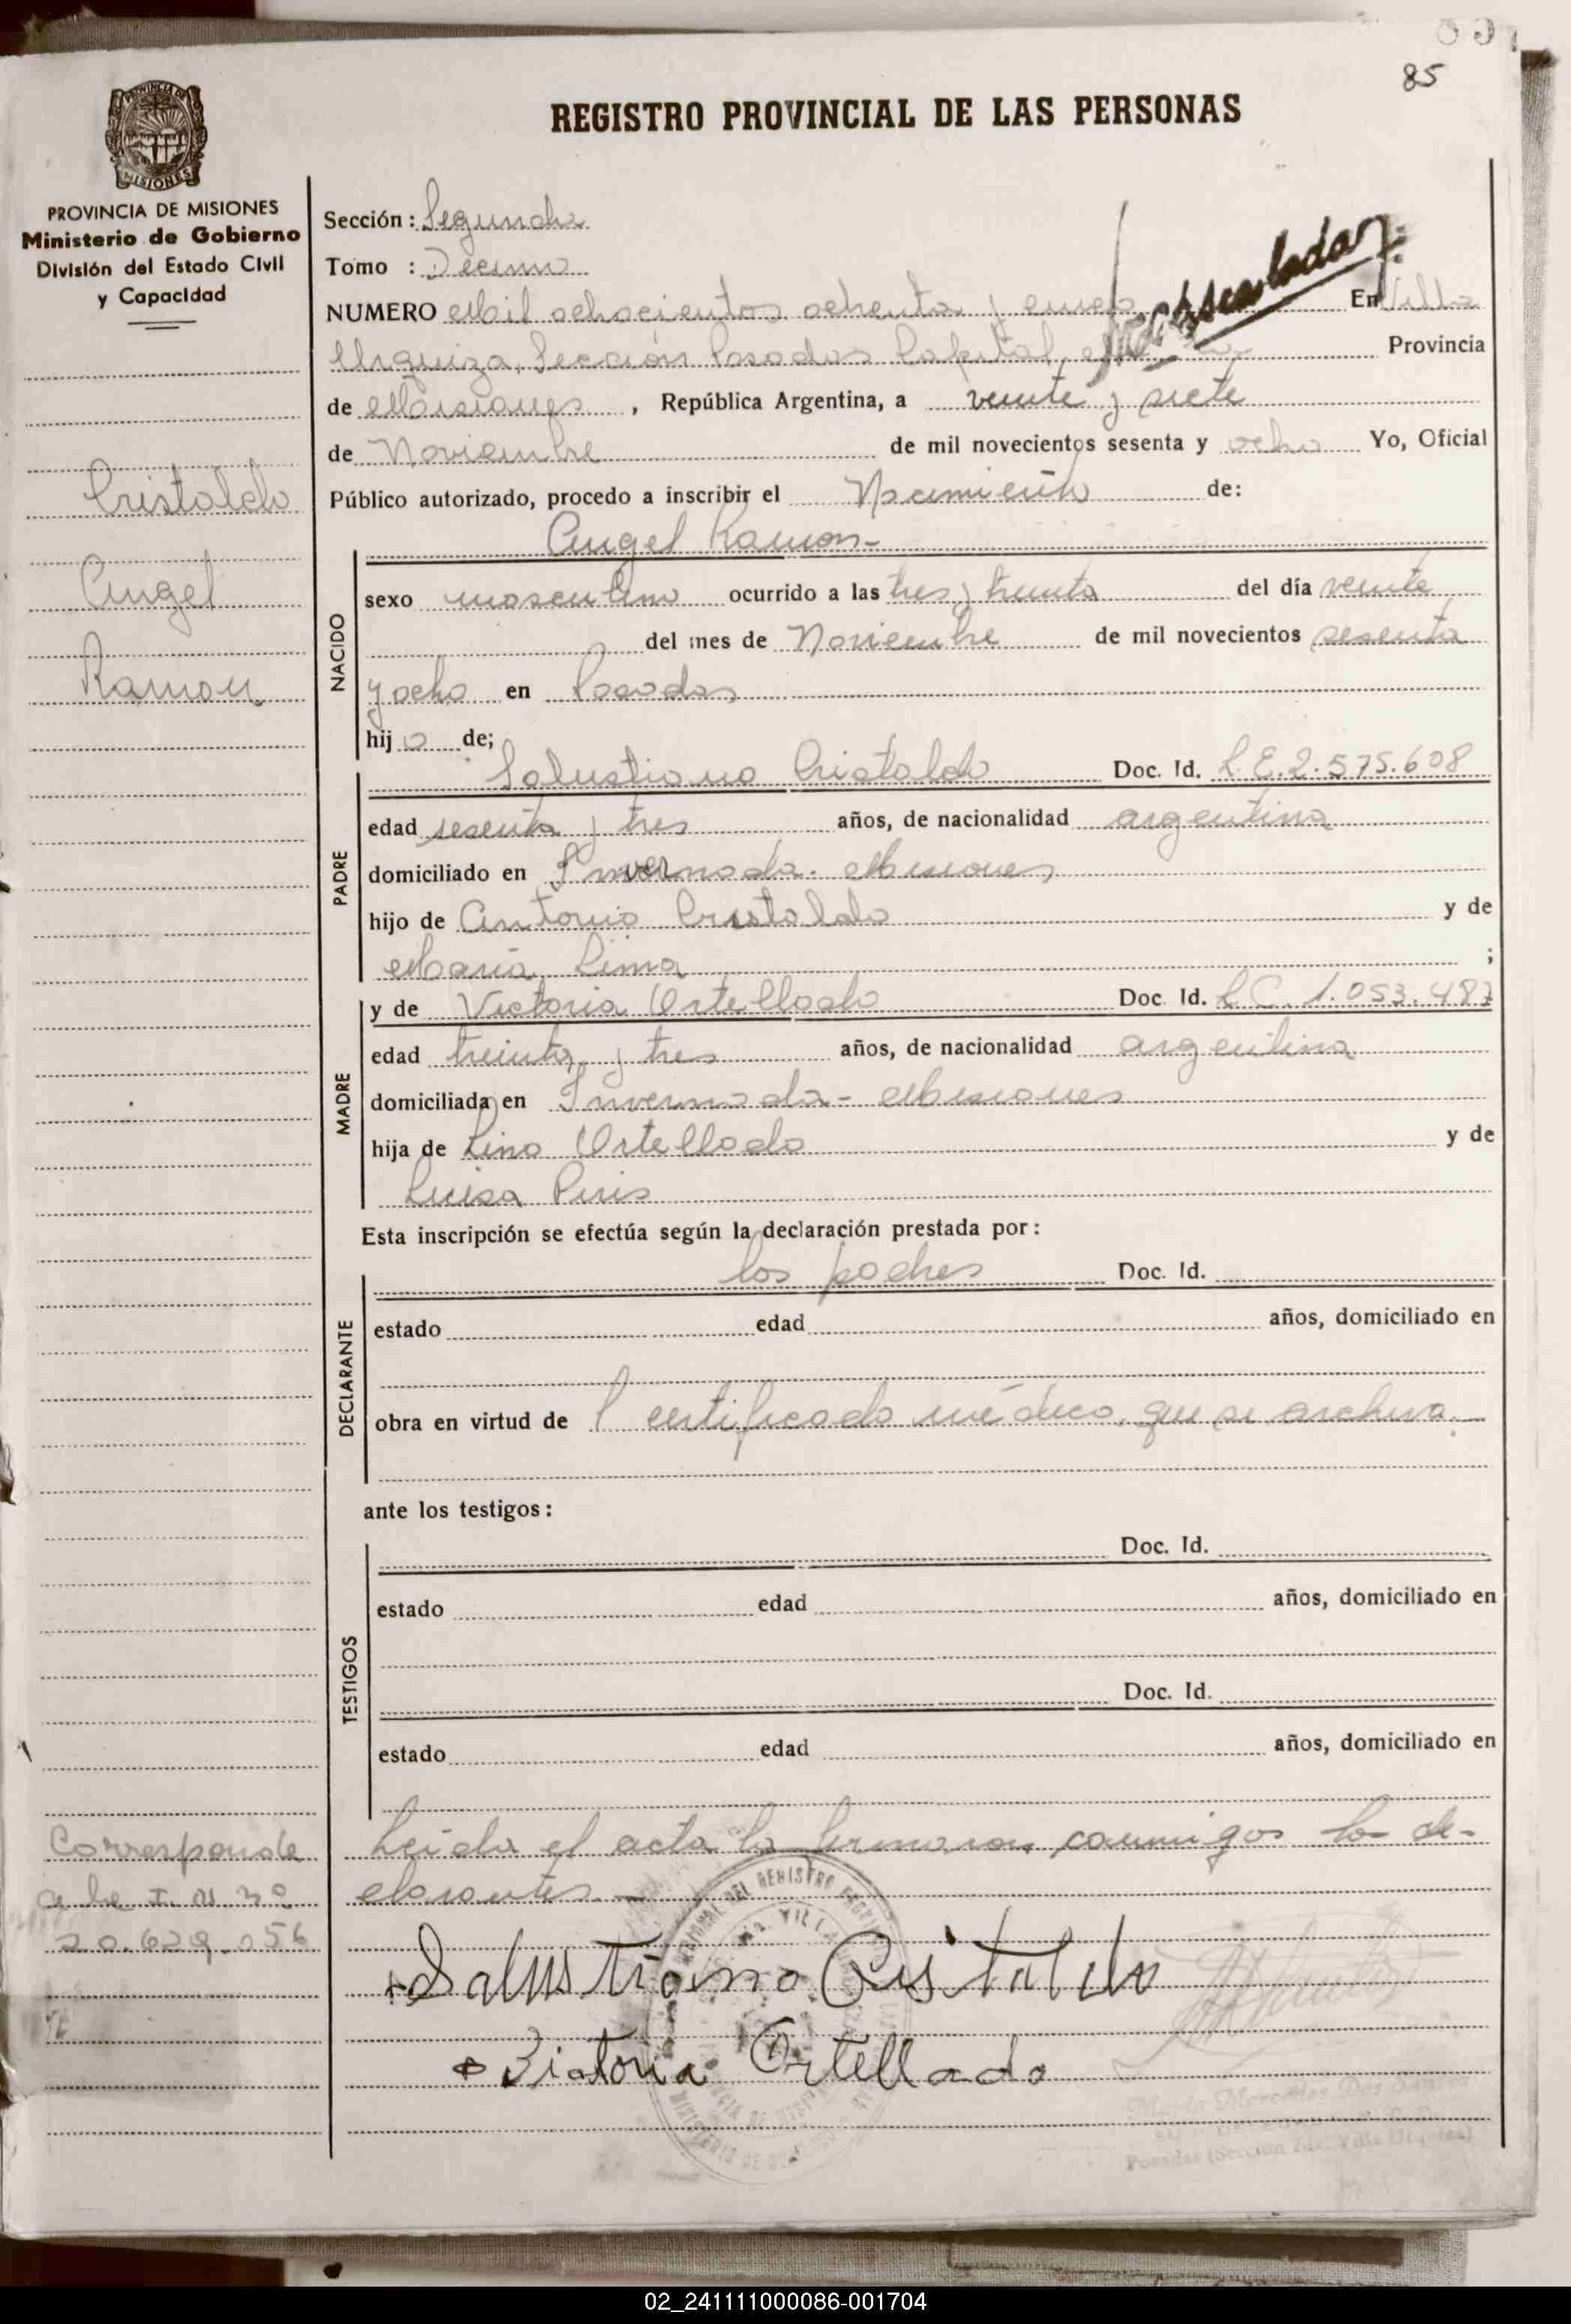 85
REGISTRO PROVINCIAL DE LAS PERSONAS
MISIONES
PROVINCIA DE MISIONES
Ministerio de Gobierno
División del Estado Civil
y Capacidad
Cristaldo
Angel
Ramon
Sección: Segunda
Tomo : Decimo
NUMERO Mil ochocientos ochenta y En Villa
Urquiza, Sección Posadas Capital, Provincia
de Misiones, República Argentina, a veinte y siete
de Noviembre de mil novecientos sesenta y ocho Yo, Oficial
Público autorizado, procedo a inscribir el Nacimiento de:
Angel Ramon-
NACIDO
sexo masculino ocurrido a las tres y treinta del día veinte
del mes de Noviembre de mil novecientos sesenta
y ocho en Posadas
hijo de;
PADRE
Salustiano Cristaldo Doc. Id. L.E. 2.575.608
edad sesenta y tres años, de nacionalidad argentina
domiciliado en Invernada. Misiones
hijo de Antonio Cristaldo y de
Maria Lima ;
MADRE
y de Victoria Ortellado Doc. Id. L.C. 1.053.487
edad treinta y tres años, de nacionalidad argentina
domiciliada en Invernada - Misiones
hija de Lino Ortellado y de
Luisa Piris
Esta inscripción se efectúa según la declaración prestada por:
DECLARANTE
los padres Doc. Id.
estado edad años, domiciliado en
obra en virtud de l certificado médico, que se archiva.
ante los testigos:
TESTIGOS
Doc. Id.
estado edad años, domiciliado en
Doc. Id.
estado edad años, domiciliado en
Leida el acta la firmaron conmigo los de-
clarantes.—
Corresponde
a la I. M nº
20.629.056
Salustiano Cristaldo
Bictoria Ortellado
Posadas (Sección 2da. Villa Urquiza)
02_241111000086-001704